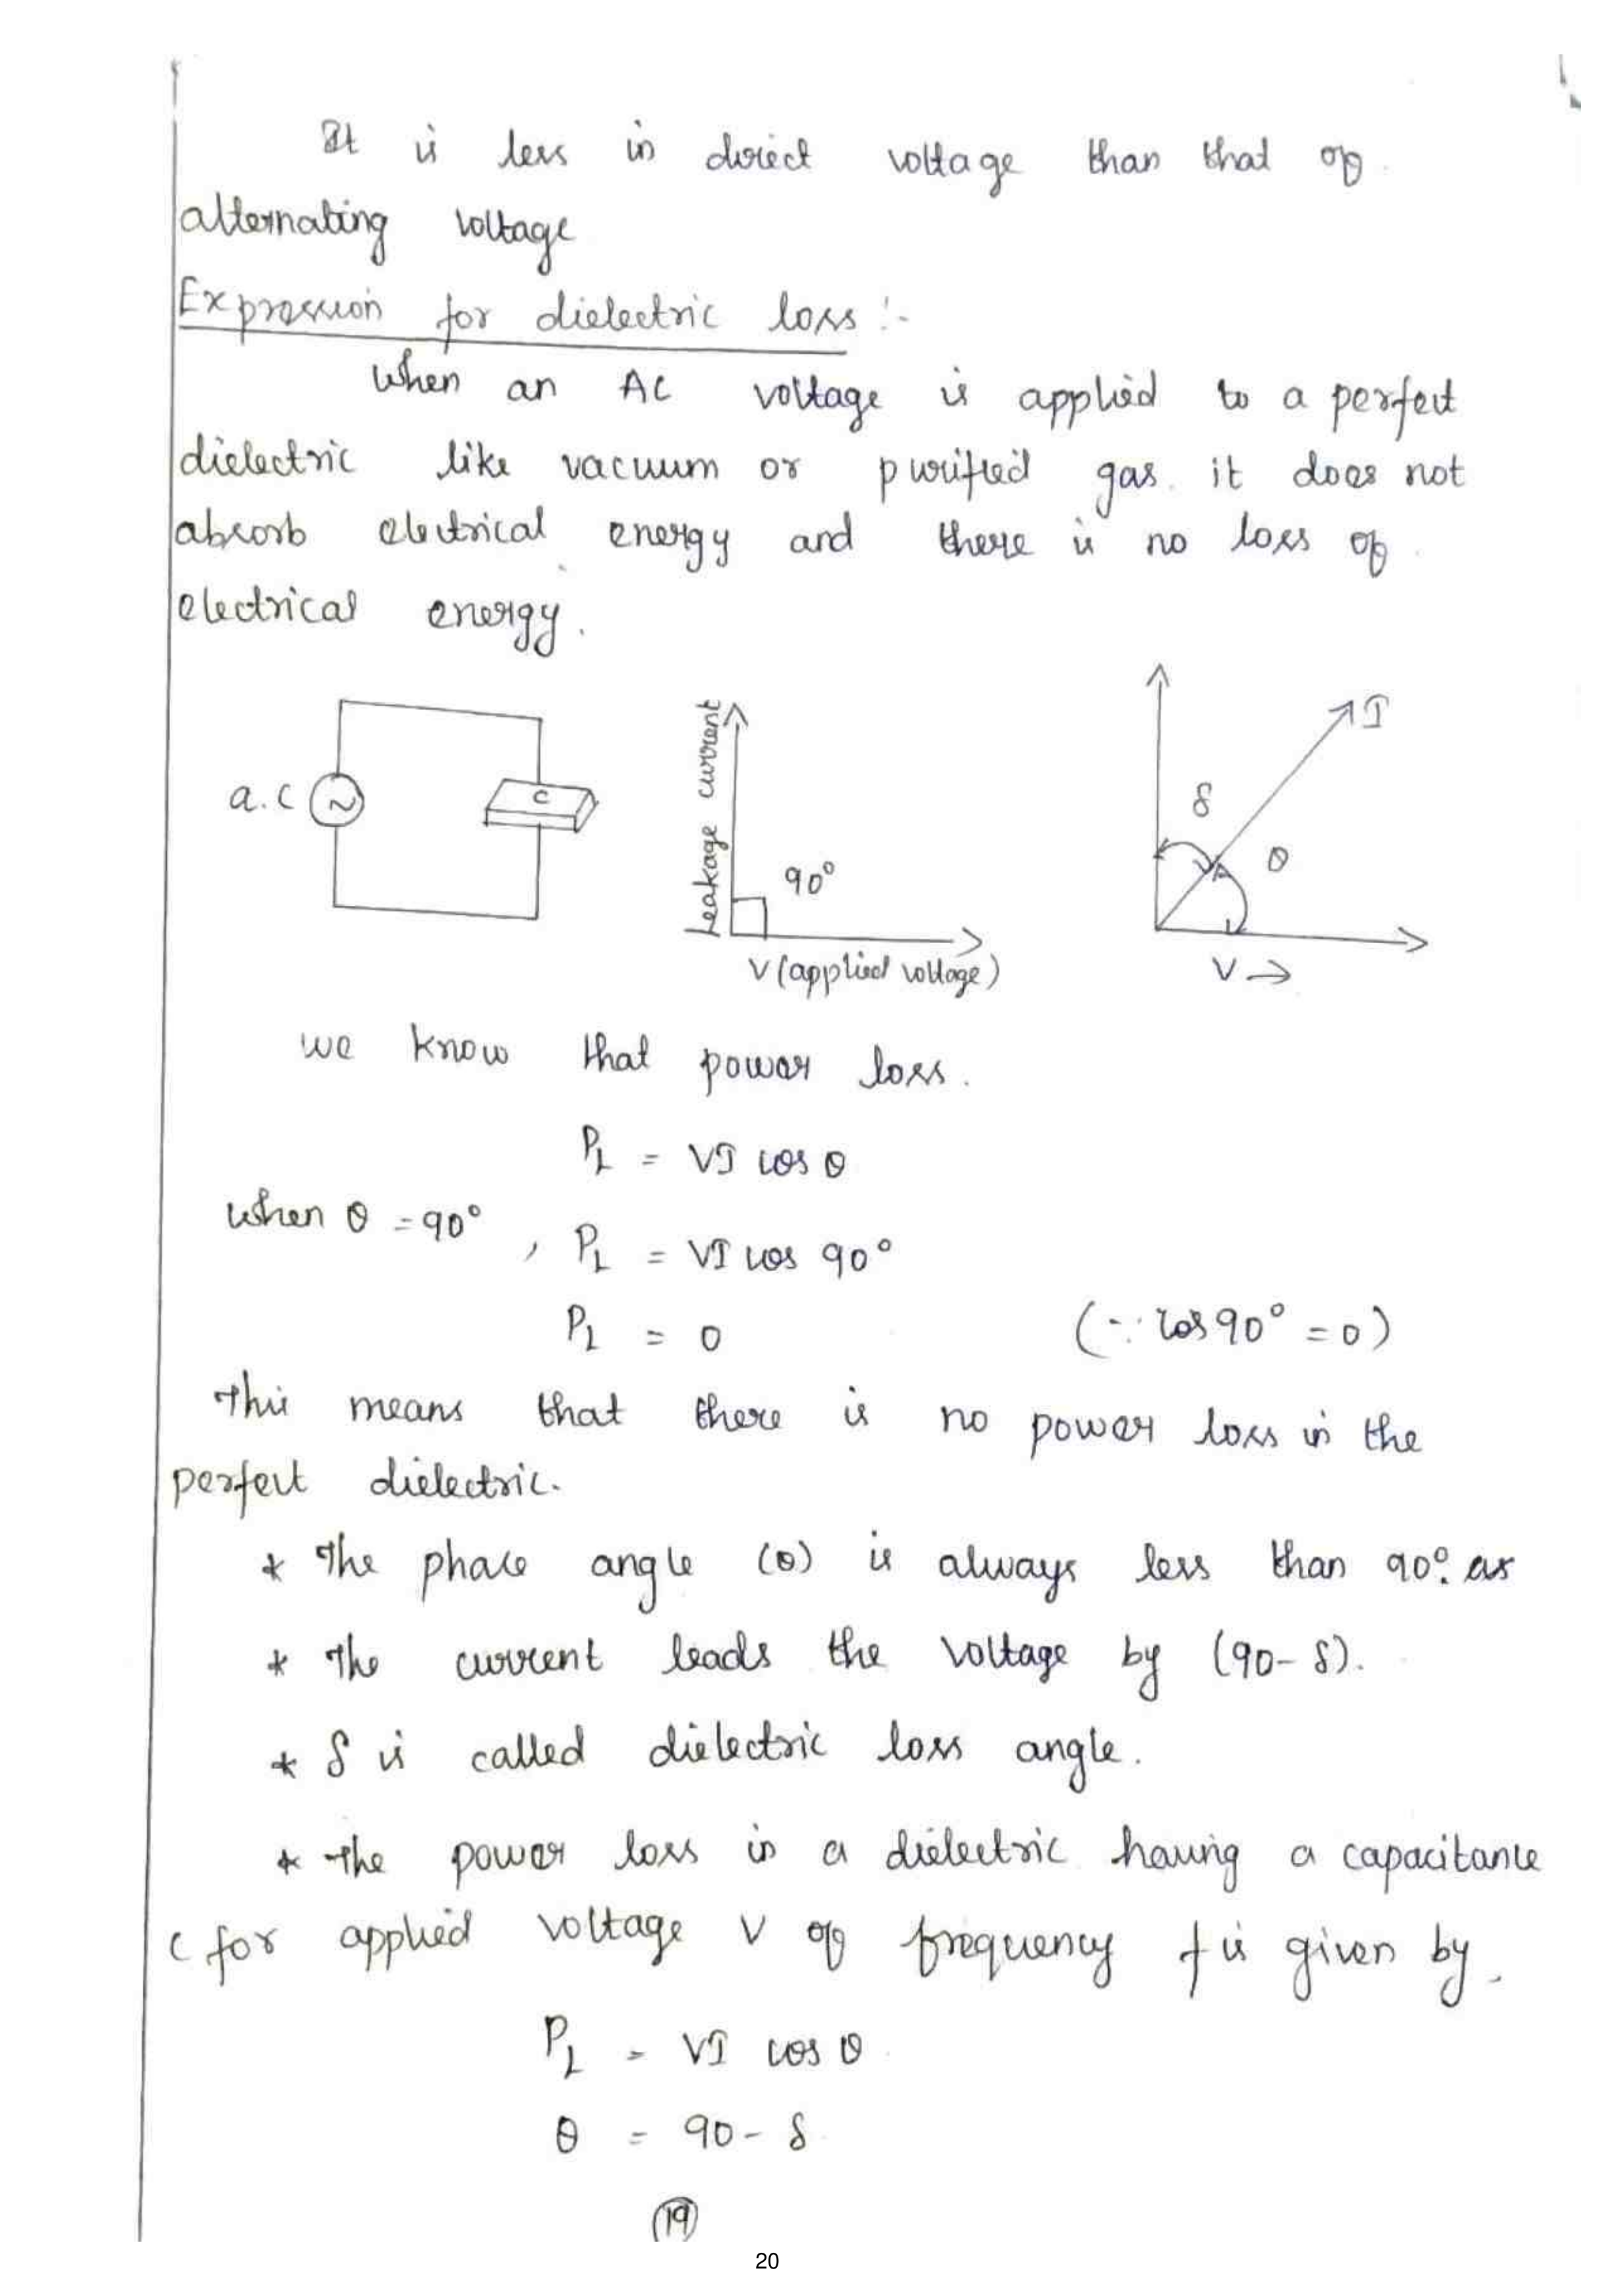 It is less in direct voltage than that of
alternating voltage
Expression for dielectric loss :-
When an AC voltage is applied to a perfect
dielectric like vacuum or purified gas. it does not
absorb electrical energy and there is no loss of
electrical energy.
a.c
C
Leakage current
90°
V (applied voltage)
I
δ
θ
V →
we know that power loss.
P_L = VI cos θ
when θ = 90° , P_L = VI cos 90°
P_L = 0 (∵ cos 90° = 0)
This means that there is no power loss in the
perfect dielectric.
* The phase angle (θ) is always less than 90°. as
* The current leads the voltage by (90 - δ).
* δ is called dielectric loss angle.
* The power loss in a dielectric having a capacitance
C for applied voltage V of frequency f is given by.
P_L = VI cos θ
θ = 90 - δ
19
20